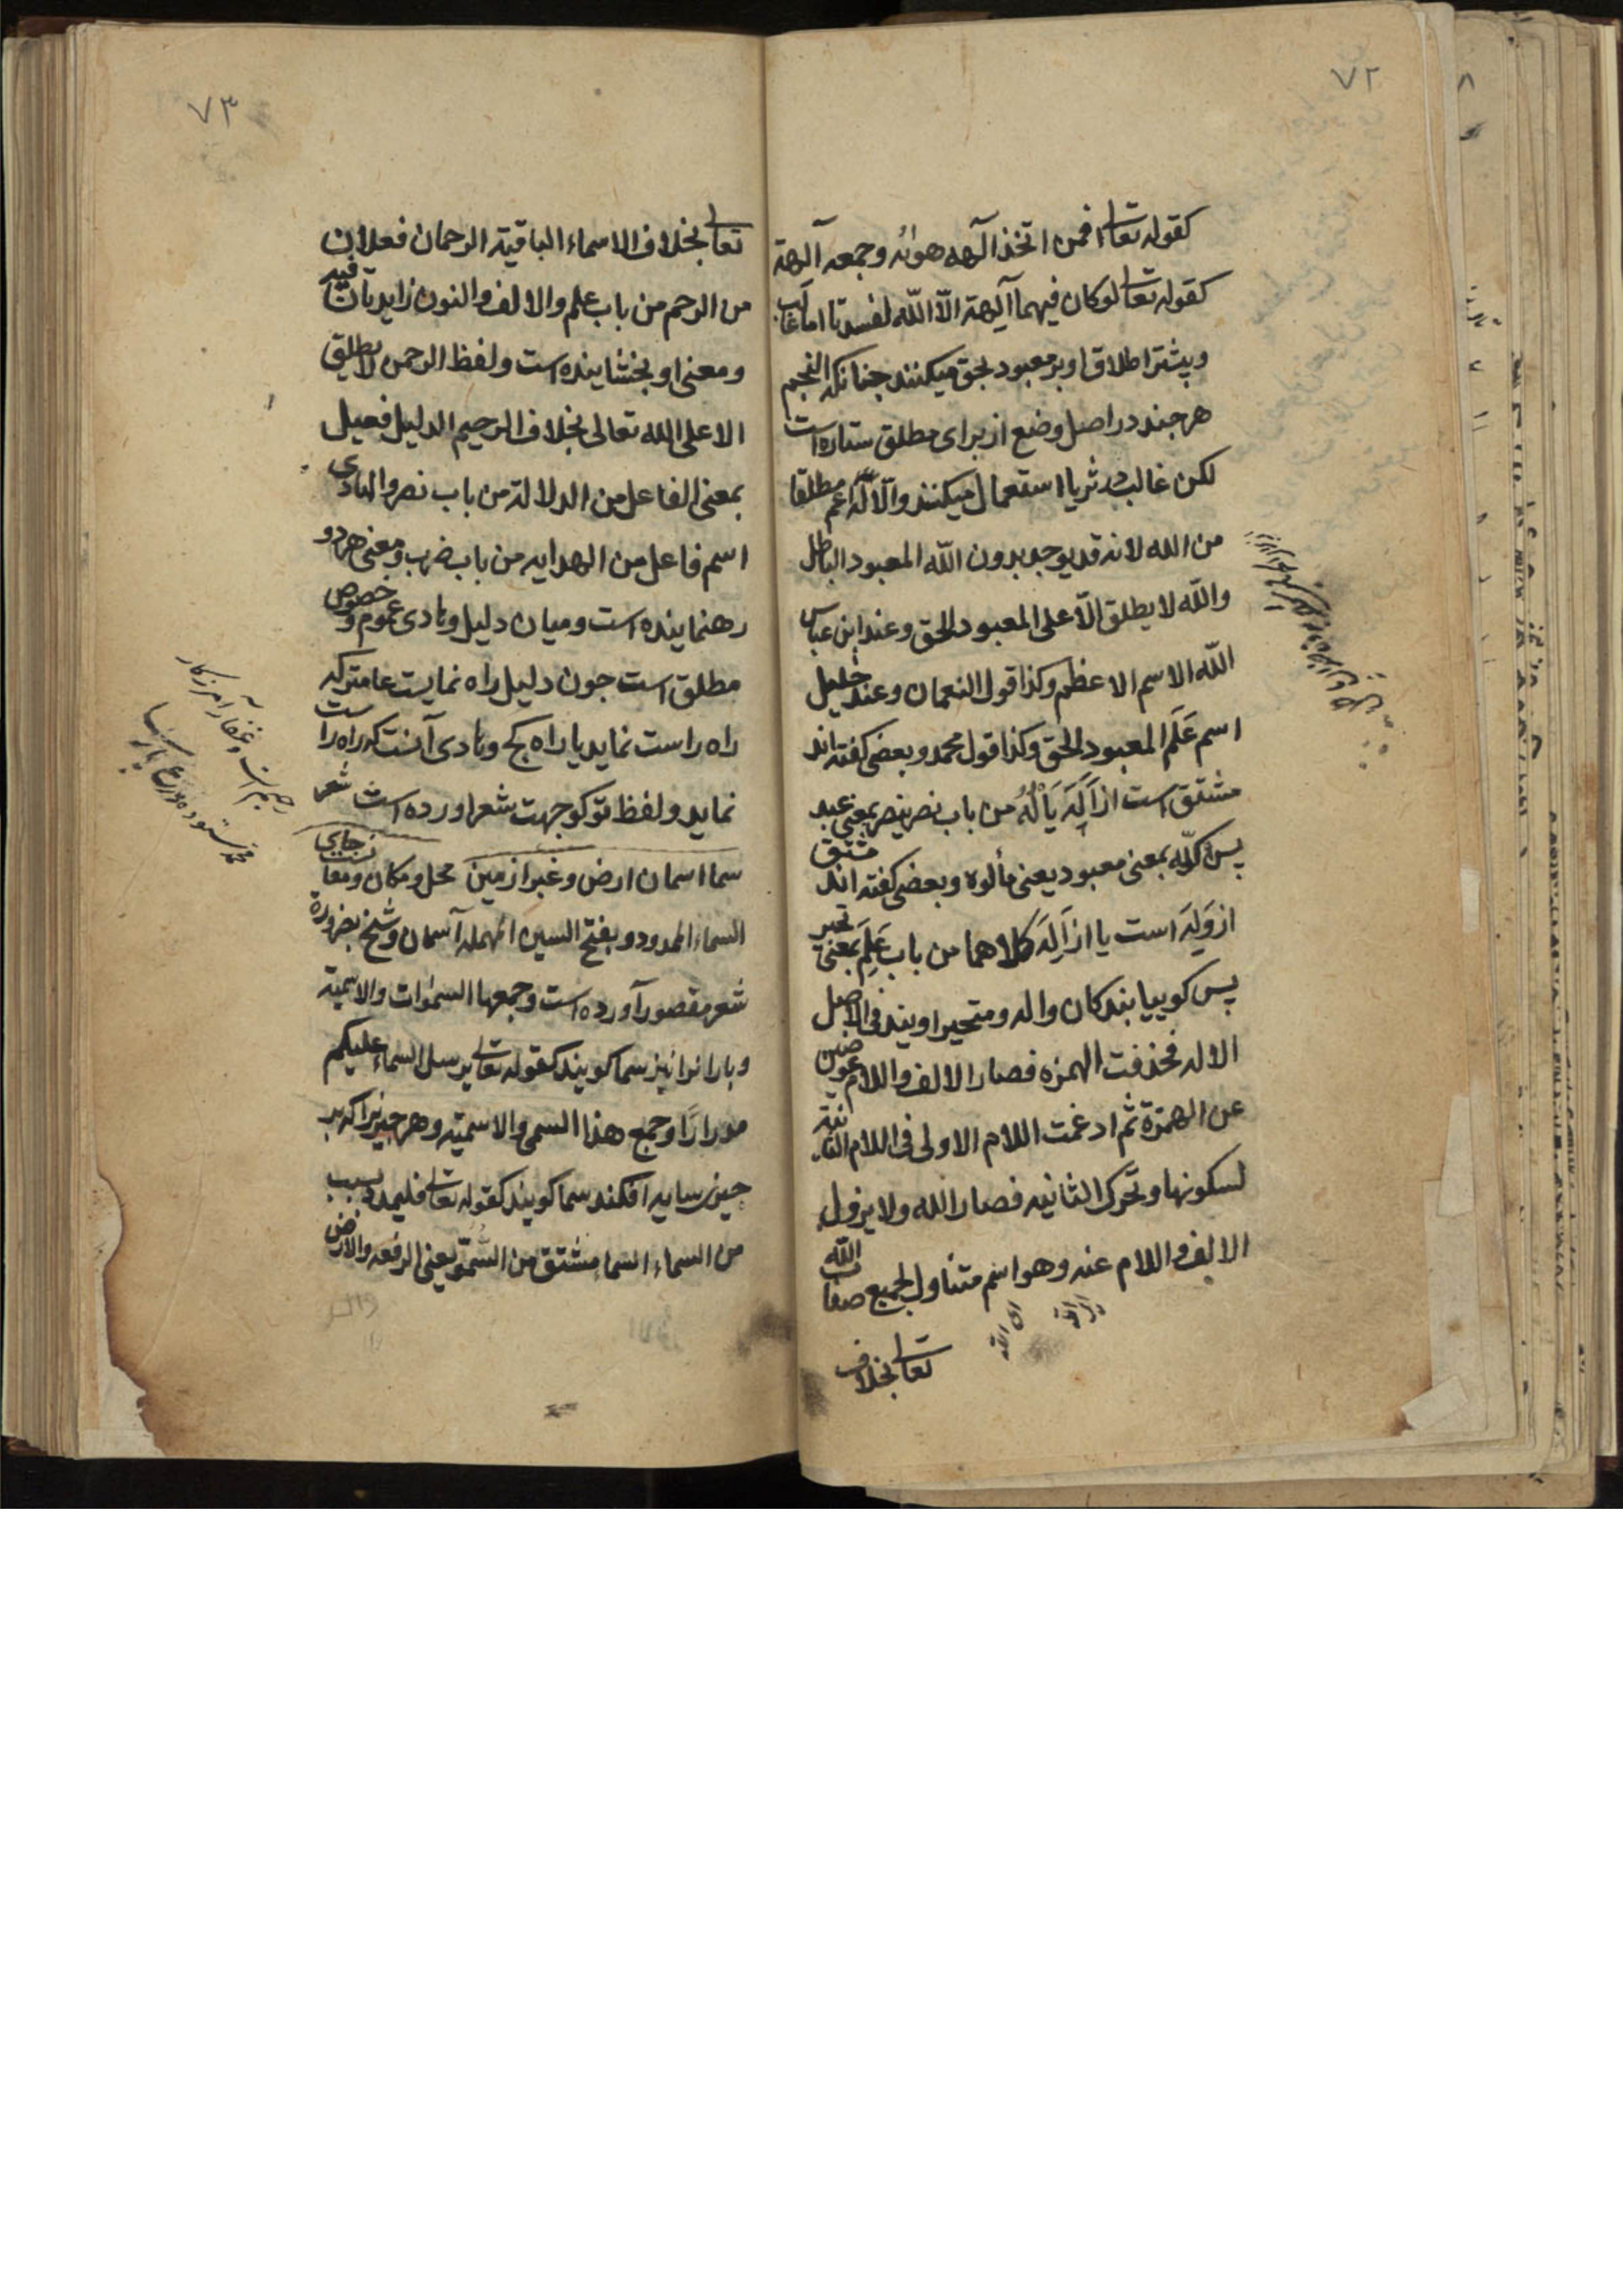 ٧٢
كقوله تعالى افمن اتخذ آلهه هوئه وجمعه آلهة
كقوله تعالى لوكان فيهما آلهة الّا اللّه لفسدتا اما غالب
وبيشتر اطلاق او بر معبود بحق ميكنند جنانكه النجم
هر جند در اصل وضع از براى مطلق ستاره است
لكن غالب در ثريا استعمال ميكنند والّاله اعم مطلقا
من الله لانه قد يوجد بدون اللّه المعبود الباطل
واللّه لا يطلق الّا على المعبود الحق وعند ابن عباس
اللّه الاسم الاعظم وكذا قول النعمان وعند خليل
اسم عَلَم المعبود الحق وكذا قول محمد وبعضى كفته اند
مشتق است از اَلَهَ يَأْلُهُ من باب نصر ينصر بمعنى عبد
پس اله بمعنى معبود يعنى مألوه وبعضى كفته اند مشتق
از وَلِهَ است يا از اَلِهَ كلاهما من باب عَلِمَ بمعنى تحير
پس كوييا بندكان واله ومتحير اويند فى الاصل
الاله فحذفت الهمزه فصار الالف واللام عوضين
عن الهمزة ثم ادغمت اللام الاولى فى اللام الثانية
لسكونها وتحرك الثانيه فصار الله ولا يزول
الالف واللام عنه وهو اسم متناول لجميع صفات اللّه
اى اللّه
تعالى بخلاف
٧٣
تعالى بخلاف الاسماء الباقية الرحمان فعلان
من الرحم من باب علم والالف والنون زايدتان فيه
ومعنى او بخشاينده است ولفظ الرحمن لا يطلق
الا على الله تعالى بخلاف الرحيم الدليل فعيل
بمعنى الفاعل من الدلالة من باب نصر والهادى
اسم فاعل من الهدايه من باب ضرب ومعنى هردو
رهنماينده است وميان دليل وهادى عموم وخصوص
مطلق است جون دليل راه نمايست عامتر كه
راه راست نمايد يا راه كج وهادى آنست كه راه راست
نمايد ولفظ تو كو جهت شعر اورده است شعر
سما اسمان ارض وغبرا زمين محل ومكان ومعانست جاى
السماء الممدود وبفتح السين المهمله آسمان وشيخ بضرورة
شعر مقصور آورده است وجمعها السموات والاسمية
وبارانرا نيز سما كويند كقوله تعالى يرسل السماء عليكم
مدرارًا وجمع هذا السمى والاسميته وهر جيزيرا كه بر
جيزى سايه افكند سما كويند كقوله تعالى فليمدد بسبب
من السماء السماء مشتق من السُّمُوّ يعنى الرفعه والارض
رحيم است وغفار آمرزكار
محمد ستوده ورع پارسا